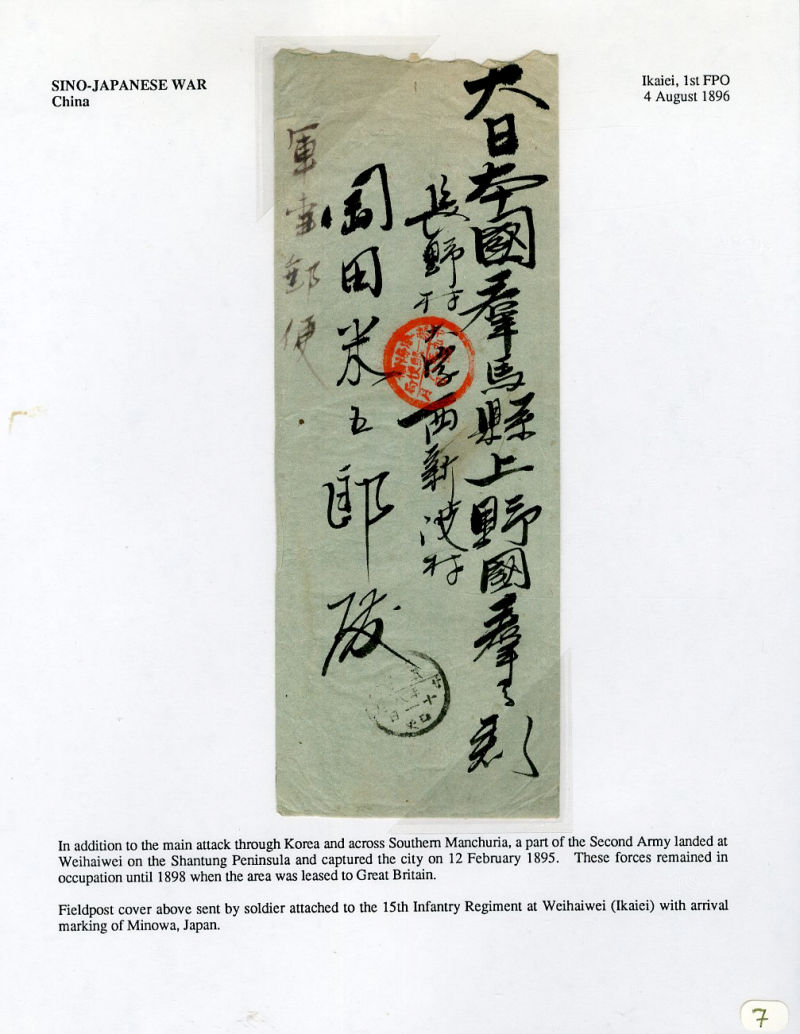 SINO-JAPANESE WAR
China
Ikaiei, 1st FPO
4 August 1896
大日本國羣馬縣上野國羣々郡
長野村大字西新波村
岡田米五郎殿
軍事郵便
In addition to the main attack through Korea and across Southern Manchuria, a part of the Second Army landed at
Weihaiwei on the Shantung Peninsula and captured the city on 12 February 1895. These forces remained in
occupation until 1898 when the area was leased to Great Britain.
Fieldpost cover above sent by soldier attached to the 15th Infantry Regiment at Weihaiwei (Ikaiei) with arrival
marking of Minowa, Japan.
7